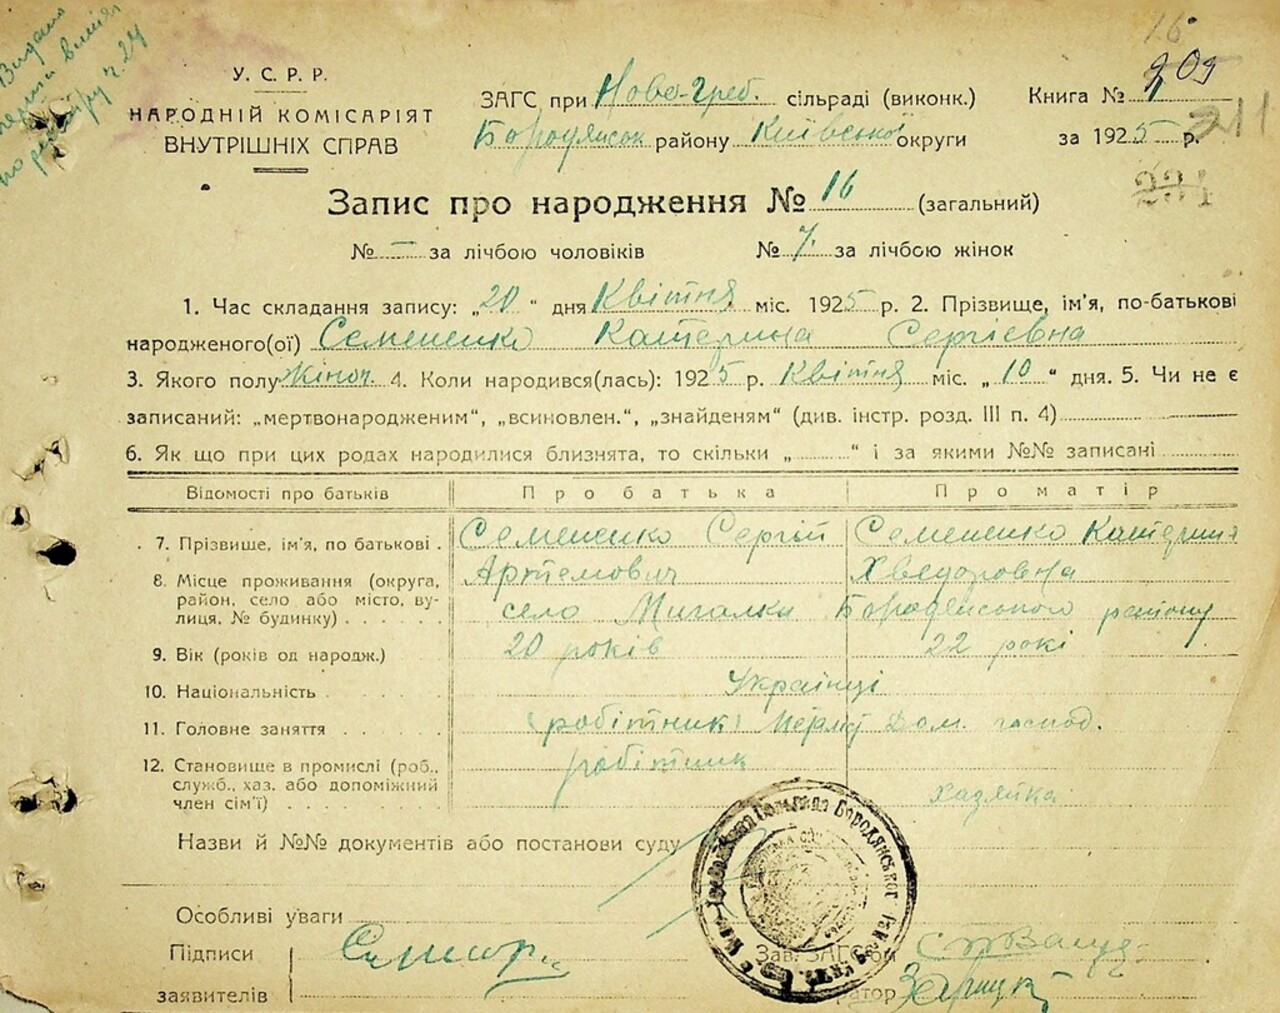 Видано
У. С. Р. Р.
НАРОДНІЙ КОМІСАРІЯТ
ВНУТРІШНІХ СПРАВ
ЗАГС при Ново-Греб. сільраді (виконк.)
Бородянськ району Київської округи
16
Книга № 205
за 1925 р. 211
231
Запис про народження № 16 (загальний)
№ — за лічбою чоловіків № 7. за лічбою жінок
1. Час складання запису: „20" дня Квітня міс. 1925 р. 2. Прізвище, ім'я, по-батькові
народженого(ої) Семененко Катерина Сергієвна
3. Якого полу Жіноч. 4. Коли народився(лась): 1925 р. Квітня міс. „10" дня. 5. Чи не є
записаний: „мертвонародженим", „всиновлен.", „знайденям" (див. інстр. розд. III п. 4)
6. Як що при цих родах народилися близнята, то скільки „ " і за якими №№ записані
Відомості про батьків Про батька Про матір
7. Прізвище, ім'я, по батькові . Семененко Сергій Семененко Катерина
Артемович Хведоровна
8. Місце проживання (округа,
район, село або місто, ву-
лиця, № будинку) село Мигалки Бородянського району
9. Вік (років од народж.) 20 років 22 рокі
10. Національність Українці
11. Головне заняття (робітник) Дом. господ.
12. Становище в промислі (роб.,
служб., хаз. або допоміжний
член сім'ї) робітник хазяйка
Назви й №№ документів або постанови суду
Особливі уваги
Підписи
заявителів
Зав. ЗАГС'ом